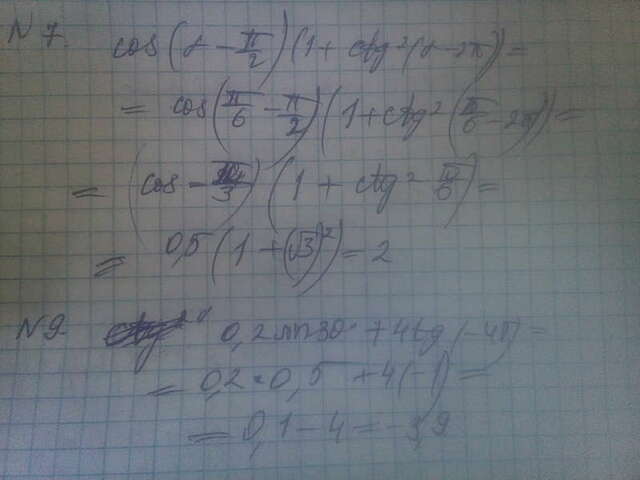 N 7. cos(α - π/2)(1 + ctg²(α - 2π)) =
= cos(π/6 - π/2)(1 + ctg²(π/6 - 2π)) =
= (cos - π/3)(1 + ctg² π/6) =
= 0,5(1 + (√3)²) = 2
N 9. 0,2 sin 30° + 4tg(-45) =
= 0,2 * 0,5 + 4(-1) =
= 0,1 - 4 = -3,9